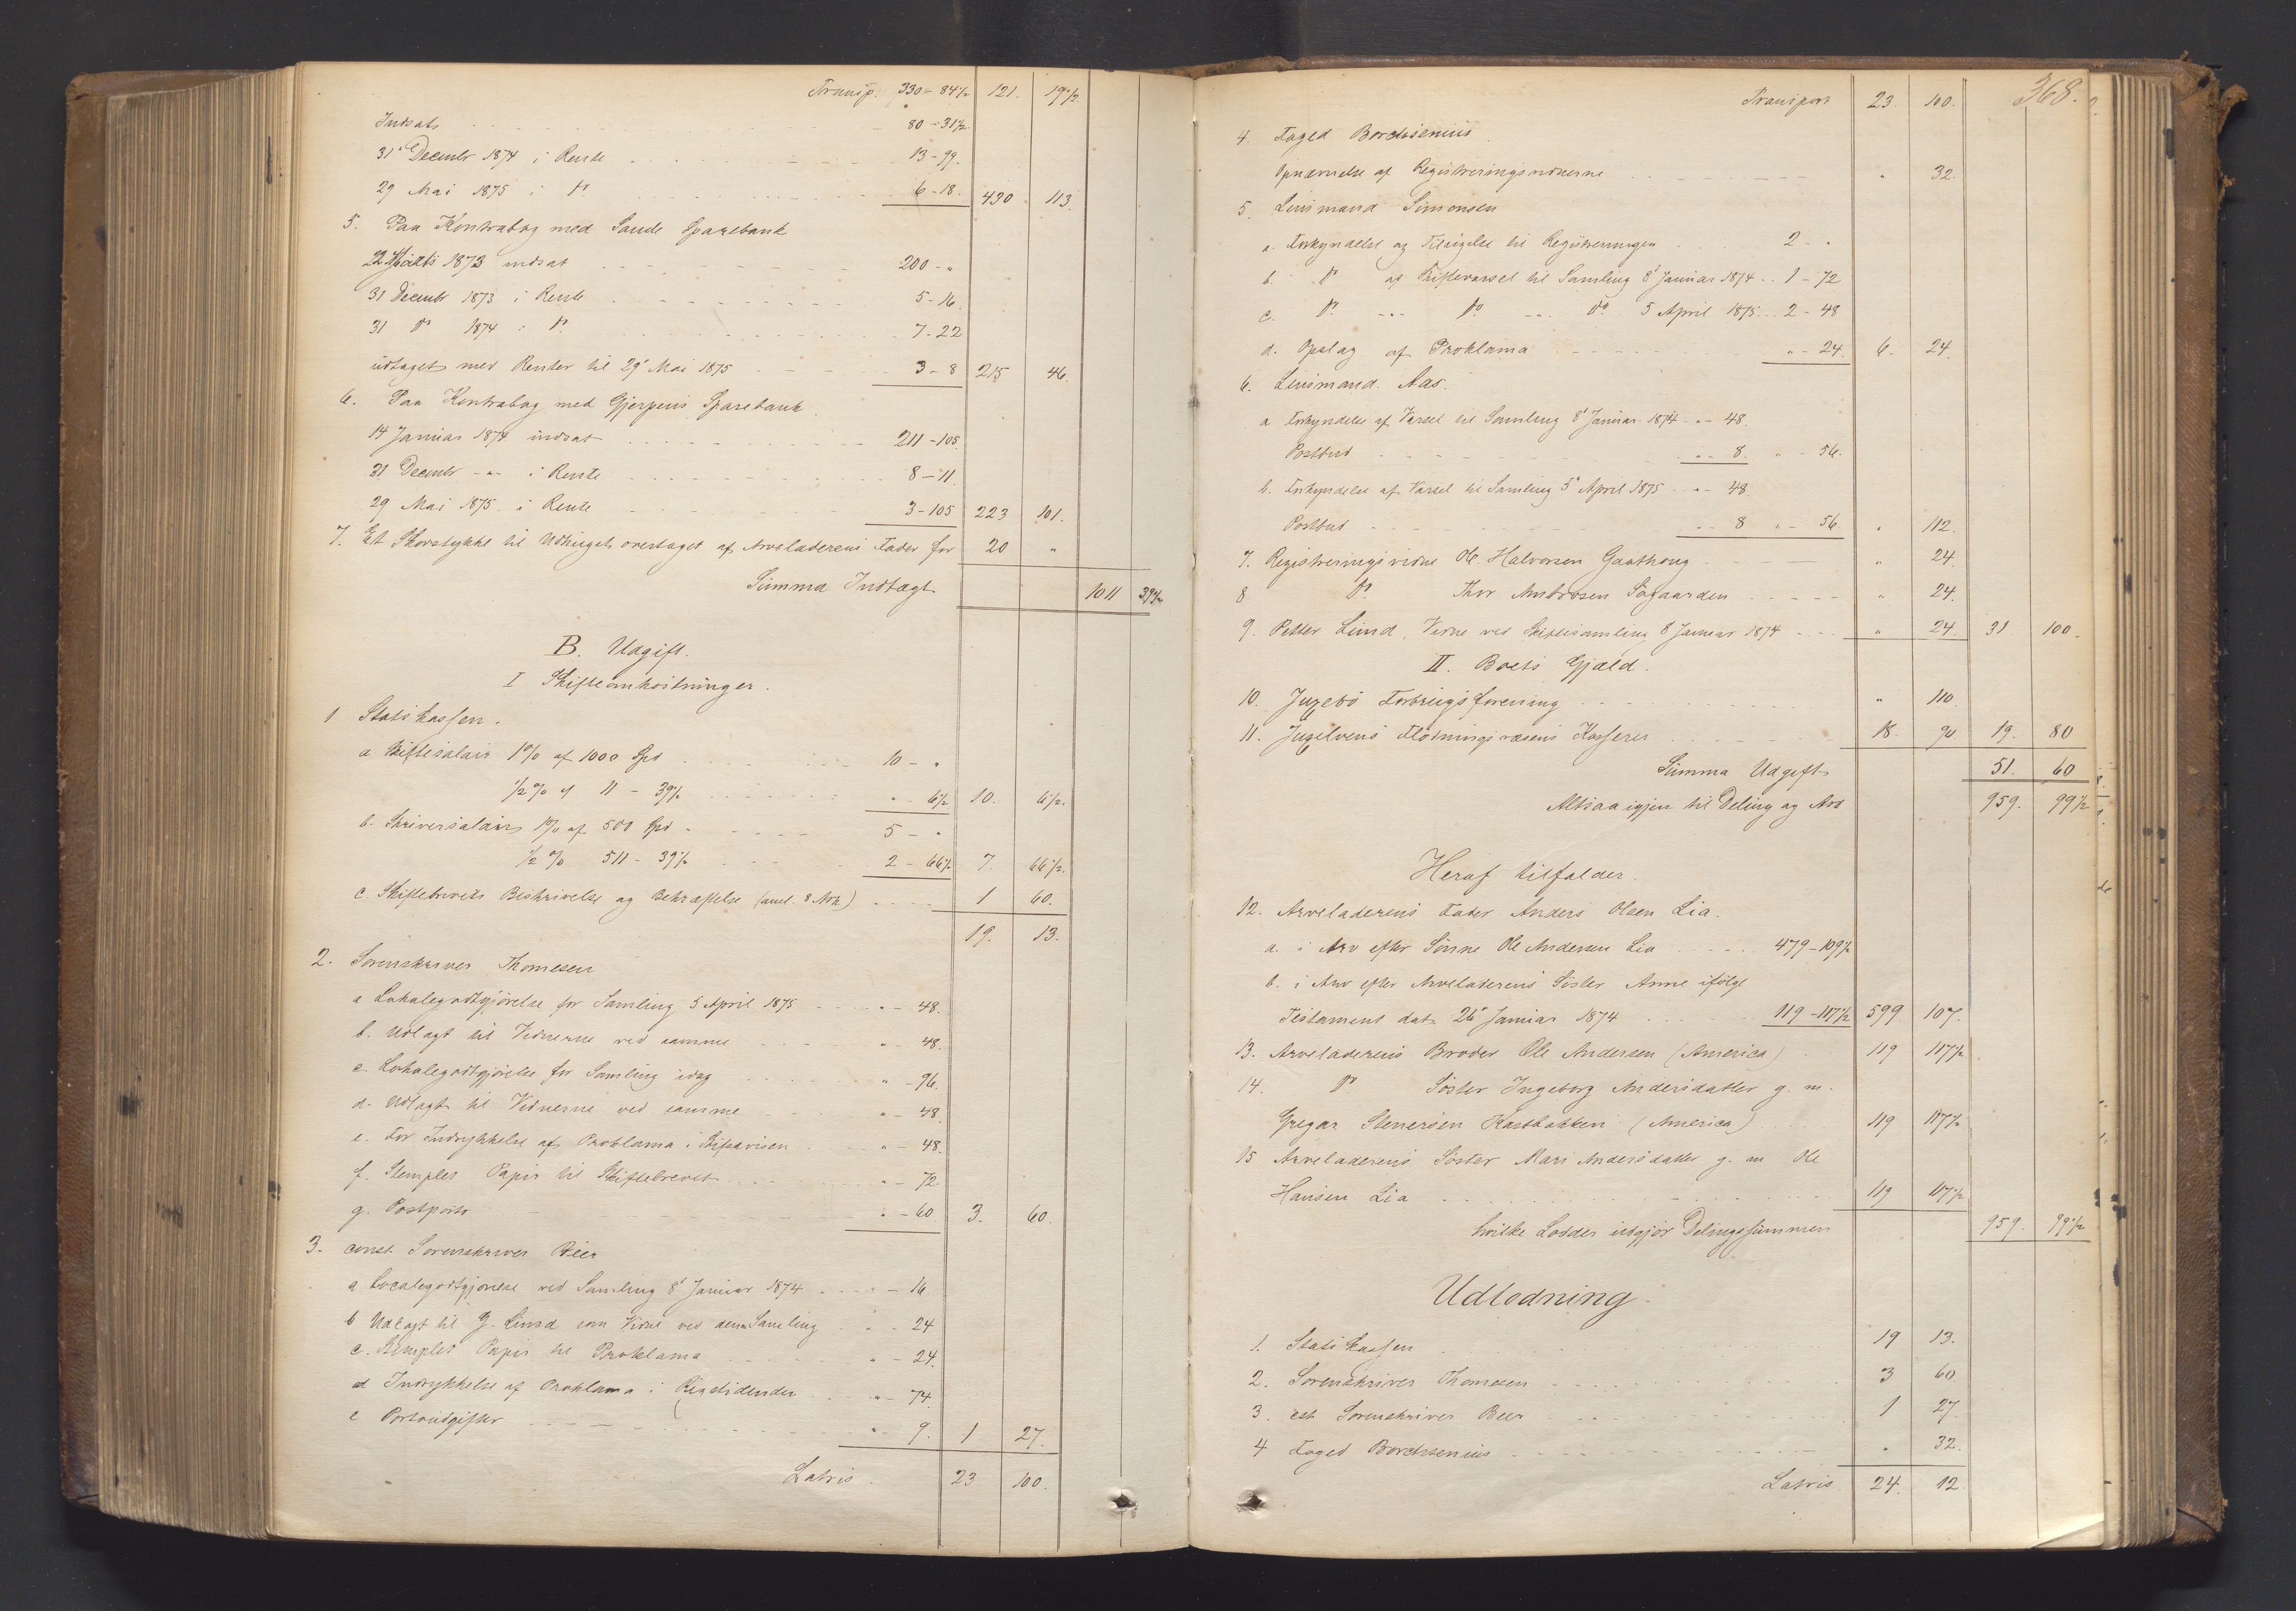 Transp. 330 - 84½ 121. 19½
Indsat 80 - 31½
31' Decembr 1874 i Rente 13 - 99.
29 Mai 1875 i do 6 - 18. 430 113.
5. Paa Kontrabog med Sande Sparebank
22 Marts 1873 indsat 200 - "
31 Decembr 1873 i Rente 5 - 16.
31 do 1874 i do 7 - 22
udtaget med Renter til 29' Mai 1875 3 - 8 215 46.
6. Paa Kontrabog med Gjerpens Sparebank
14 Januar 1874 indsat 211 - 105
31 Decembr - " - i Rente 8 - 11.
29 Mai 1875 i Rente 3 - 105 223 101.
7. Et Skovstykke til Udhugst overtaget af Arveladerens Fader for 20 "
Summa Indtægt 1011 39½
B. Udgift.
I Skifteomkostninger.
1 Statskassen.
a Skiftesalair 1% af 1000 Spd 10 - "
½% af 11 - 39½ " - 6½ 10. 6½.
b. Skriversalair 1% af 500 Spd 5 - "
½% 511 - 39½ 2 - 66½ 7. 66½.
c. Skiftebrevets Beskrivelse og Bekræftelse (ansl. 8 Ark) 1 60.
19. 13.
2. Sorenskriver Thomesen
a Lokalegodtgjörelse for Samling 5 April 1875 " - 48.
b. Udlagt til Vidnerne ved samme " - 48.
c. Lokalegodtgjörelse for Samling idag " - 96.
d. Udlagt til Vidnerne ved samme " - 48.
e. For Indrykkelse af Proklama i Stiftsavisen " - 48.
f. Stemplet Papir til Skiftebrevet " - 72
g. Postporto " - 60 3. 60.
3. const. Sorenskriver Beer
a Localegodtgjörelse ved Samling 8' Januar 1874 " - 16
b Udlagt til P. Lund som Vidne ved denne Samling " - 24
c. Stemplet Papir til Proklama " - 24.
d Indrykkelse af Proklama i Rigstidende " - 74.
e Portoudgifter " - 9. 1 27.
Latris 23 100.
368.
Transport 23. 100.
4. Foged Borchsenius
Opnævnelse af Registreringsvidnerne " 32.
5. Lensmand Simonsen
a. Forkyndelse og Tilsigelse til Registreringen 2 - "
b. do af Skiftevarsel til Samling 8' Januar 1874 1 - 72
c. do - " - do - " - do 5 April 1875 2 - 48
d. Opslag af Proklama " - 24. 6. 24.
6. Lensmand Aas.
a Forkyndelse af Varsel til Samling 8' Januar 1874 " - 48.
Postbud " - 8. " - 56.
b. Forkyndelse af Varsel til Samling 5' April 1875 " - 48.
Postbud " - 8 " - 56 " 112.
7. Registreringsvidne Ole Halvorsen Gaathoug " 24.
8 do Thor Ambrosen Sögaarden " 24.
9. Petter Lund, Vidne ved Skiftesamling 8 Januar 1874 " 24. 31. 100.
II. Boets Gjæld.
10. Forbrugsforening " 110.
11. Flödningsvæsens Kasserer 18. 90 19. 80
Summa Udgift 51. 60
Altsaa igjen til Deling og Arv 959. 99½
Heraf tilfalder.
12. Arveladerens Fader Anders Olsen Lia.
a. i Arv efter Sönne Ole Andersen Lia 479 - 109½
b. i Arv efter Arveladerens Söster Anne ifölge
Testament dat. 26' Januar 1874 119 - 117½ 599. 107.
13. Arveladerens Broder Ole Andersen (America) 119 117½
14. do Söster Ingeborg Andersdatter g. m.
Gregar Stenersen Kaasbakken (America) 119 117½
15 Arveladerens Söster Mari Andersdatter g. m. Ole
Hansen Lia 119 117½
hvilke Lodder udgjör Delingssummen 959. 99½
Udlodning.
1. Statskassen 19 13.
2. Sorenskriver Thomesen 3 60
3. cst. Sorenskriver Beer 1 27.
4 Foged Borchsenius " 32.
Latris 24. 12